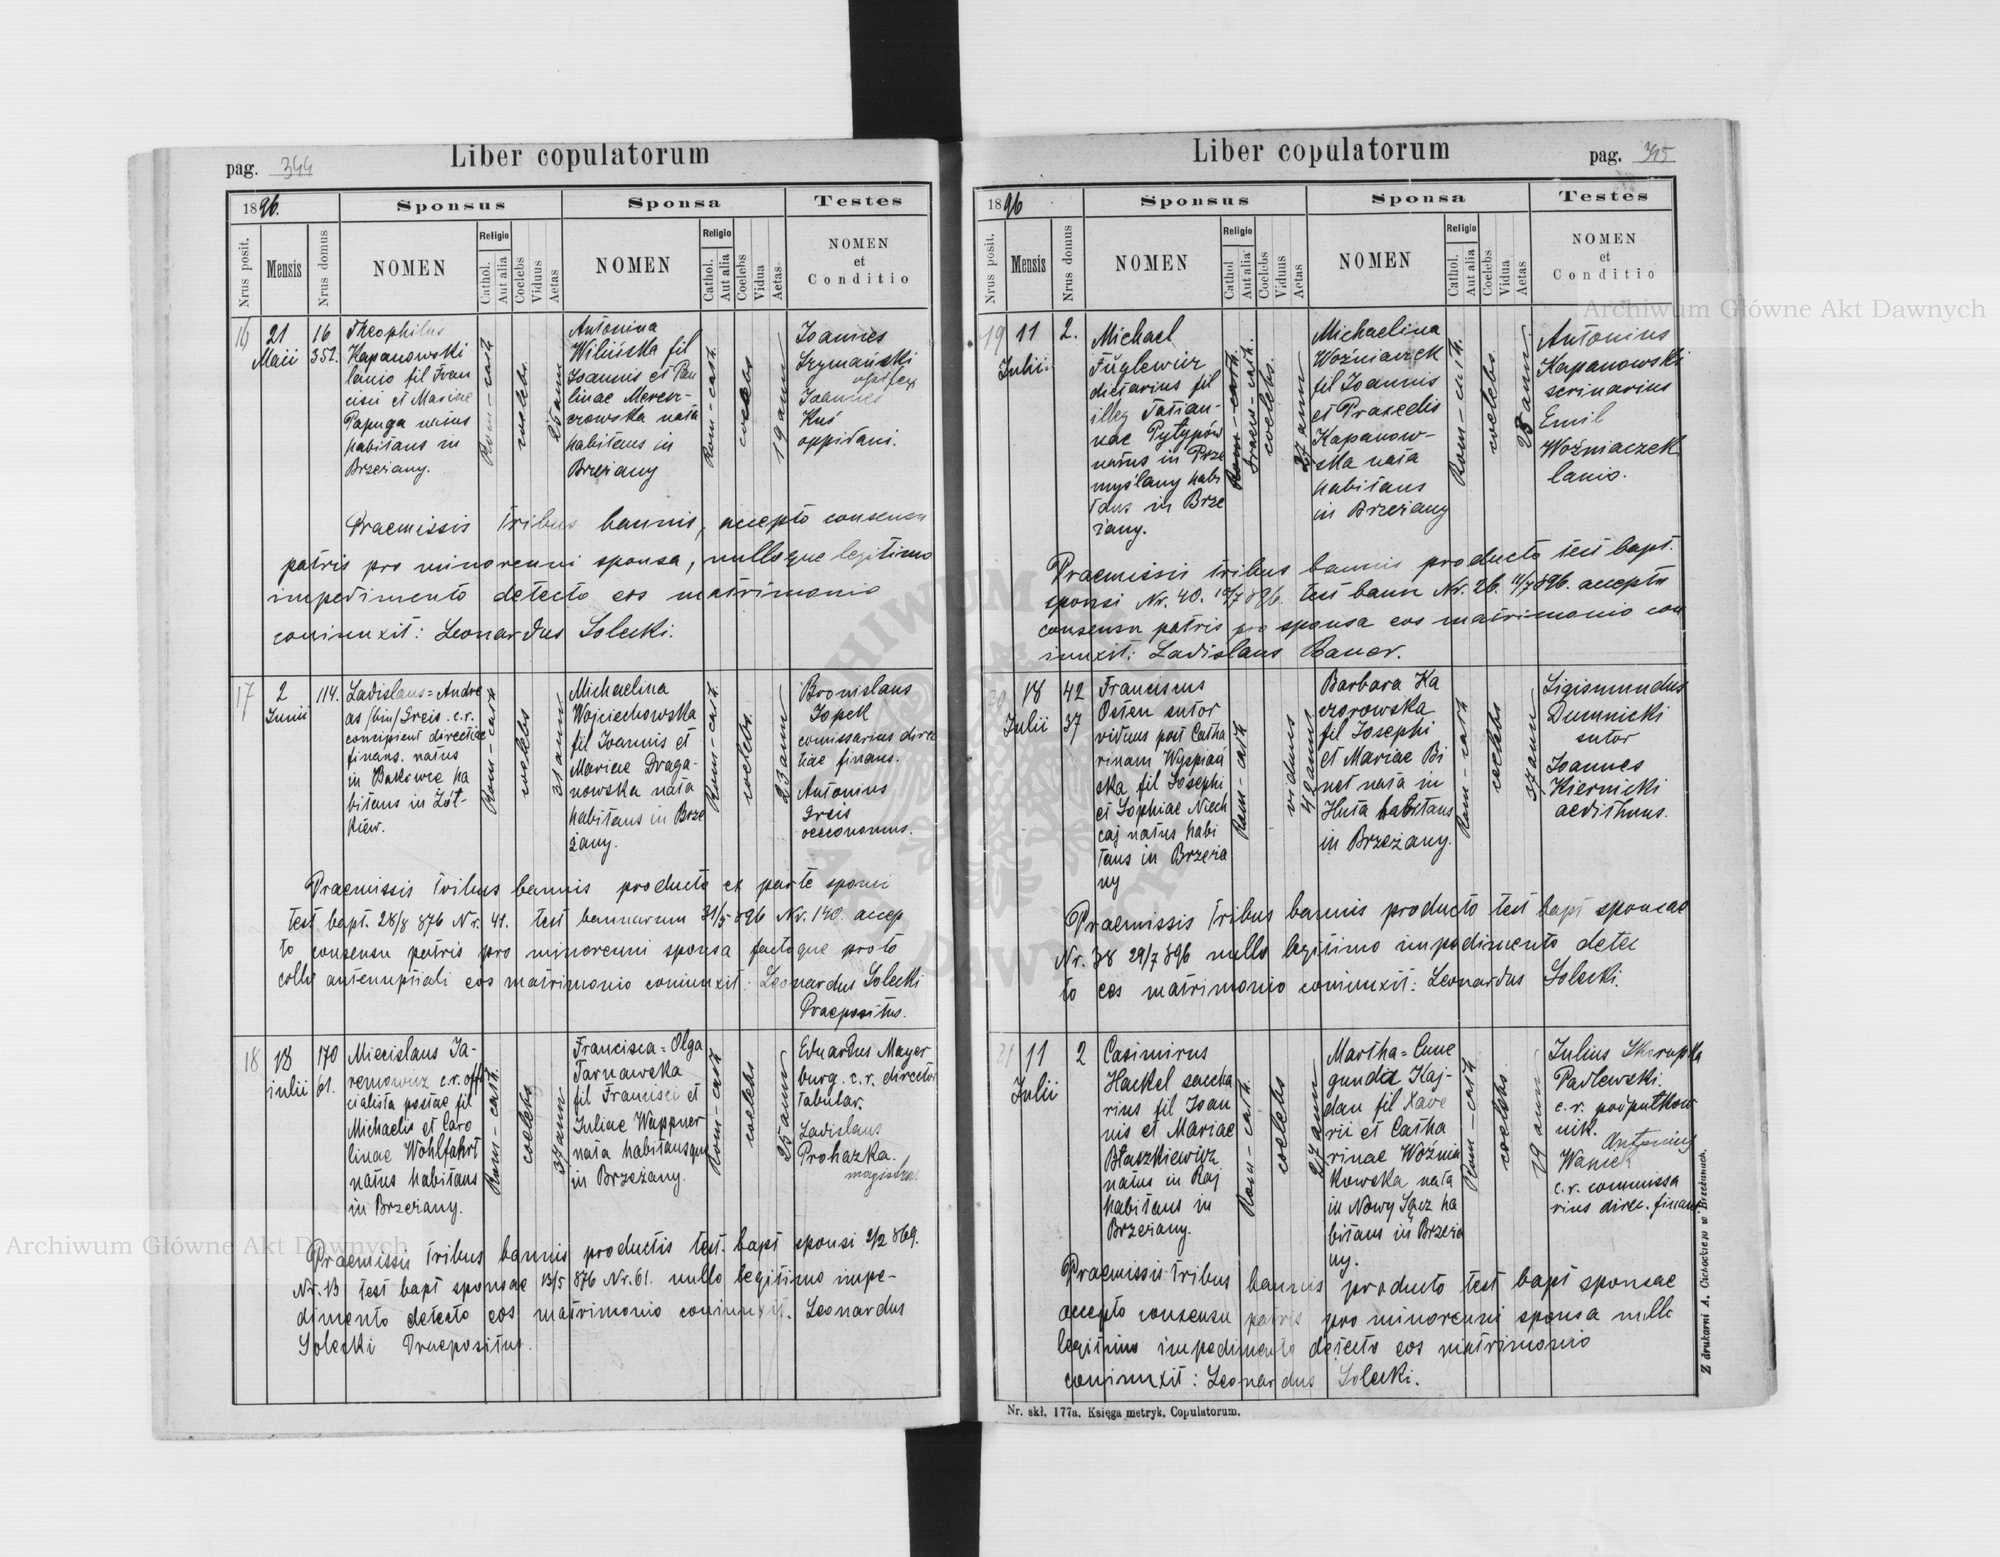 pag. 344
Liber copulatorum
1896.
Sponsus
Sponsa
Testes
Nrus posit.
Mensis
Nrus domus
NOMEN
Religio
Cathol.
Aut alia
Coelebs
Viduus
Aetas
NOMEN
Religio
Cathol.
Aut alia
Coelebs
Vidua
Aetas
NOMEN
et
Conditio
16
21
Maii
16
352.
Theophilus
Kapanowski
lanio fil Fran
cisci et Mariae
Papuga natus
habitans in
Brzeżany.
Rom-cath
coelebs
25 ann
Antonina
Wilińska fil
Joannis et Pau
linae Meresz-
czowska nata
habitans in
Brzeżany
Rom-cath.
coelebs
19 ann
Joannes
Szymański
Joannes
Kuś
oppidani.
Praemissis tribus bannis, accepto consensu
patris pro minorenni sponsa, nulloque legitimo
impedimento detecto eos matrimonio
coniunxit: Leonardus Solecki.
17
2
Junii
114.
Ladislaus=Andre
as (bin) Greis. c.r.
concipient directiae
finans. natus
in Bukowce ha
bitans in Żół-
kiew.
Rom-cath
coelebs
31 ann
Michaelina
Wojciechowska
fil Joannis et
Mariae Draga-
nowska nata
habitans in Brze
żany.
Rom-cath.
coelebs.
23 ann
Bronislaus
Jopek
comissarius direc
tiae finans.
Antonius
Greis
oeconomus.
Praemissis tribus bannis producto ex parte sponsi
test bapt. 28/8 876 Nr. 41. test bannorum 31/5 896 Nr. 140. accep
to consensu patris pro minorenni sponsa factoque proto
collo antenuptiali eos matrimonio coniunxit: Leonardus Solecki
Praepositus.
18
18
iulii
170
61.
Miecislaus Ja-
remowicz c.r. offi
cialista postae fil
Michaelis et Caro
linae Wohlfahrt
natus habitans
in Brzeżany.
Rom-cath.
coelebs
37 ann
Francisca=Olga
Tarnawska
fil Francisci et
Juliae Wappner
nata habitansque
in Brzeżany.
Rom-cath
coelebs
25 ann
Eduardus Mayer
burg. c.r. director
tabular.
Ladislaus
Prohazka.
Praemissis tribus bannis productis test. bapt sponsi 2/2 869.
Nr. 13 test bapt sponsae 13/5 876 Nr. 61. nullo legitimo impe-
dimento detecto eos matrimonio coniunxit. Leonardus
Solecki Praepositus.
Liber copulatorum
pag. 345
1896
Sponsus
Sponsa
Testes
Nrus posit.
Mensis
Nrus domus
NOMEN
Religio
Cathol
Aut alia
Coelebs
Viduus
Aetas
NOMEN
Religio
Cathol.
Aut alia
Coelebs
Vidua
Aetas
NOMEN
et
Conditio
19
11
Julii.
2.
Michael
Fuglewicz
dietarius fil
illeg Tatian-
nae Pytypów
natus in Prze
myślany habi
tans in Brze
żany.
graeco-cath.
coelebs.
27 ann
Michaelina
Woźniaczek
fil Joannis
et Praxedis
Kapanow-
ska nata
habitans
in Brzeżany
Rom-cath.
coelebs.
23 ann.
Antonius
Kapanowski
scriniarius
Emil
Woźniaczek
lanio.
Praemissis tribus bannis producto test bapt.
sponsi Nr. 40. 10/7 896. test bann Nr. 26. 11/7 896. accepto
consensu patris pro sponsa eos matrimonio con
iunxit: Ladislaus Bauer.
20
18
Julii
42
37
Franciscus
Osten sutor
viduus post Catha
rinam Wyspiań
ska fil Josephi
et Sophiae Niech
caj natus habi
tans in Brzeża
ny
Rom-cath
viduus
42 ann
Barbara Ka
czorowska
fil Josephi
et Mariae Bi
net nata in
Huta habitans
in Brzeżany.
Rom-cath
coelebs
37 ann
Sigismundus
Dumnicki
sutor
Joannes
Kiernicki
aedithuus.
Praemissis tribus bannis producto test bapt sponsae
Nr. 38 29/7 896 nullo legitimo impedimento detec
to eos matrimonio coniunxit: Leonardus Solecki.
21
11
Julii
2
Casimirus
Hackel saccha
rius fil Joan
nis et Mariae
Błaszkiewicz
natus in Raj
habitans in
Brzeżany.
Rom-cath.
coelebs
27 ann
Martha=Cune
gunda Kaj-
dan fil Xave
rii et Catha
rinae Woźnia
kowska nata
in Nowy Sącz ha
bitans in Brzeża
ny.
Rom-cath
coelebs.
19 ann
Julius Skorupka
Padlewski.
c.r. podpułkow
nik.
Antonius
Wanick
c.r. commissa
rius direc. finans
Praemissis tribus bannis producto test bapt sponsae
accepto consensu patris pro minorenni sponsa nullo
legitimo impedimento detecto eos matrimonio
coniunxit: Leonardus Solecki.
Nr. skł. 177a. Księga metryk. Copulatorum.
Z drukarni A. Cichockiego w Brzeżanach.
Archiwum Główne Akt Dawnych
Archiwum Główne Akt Dawnych